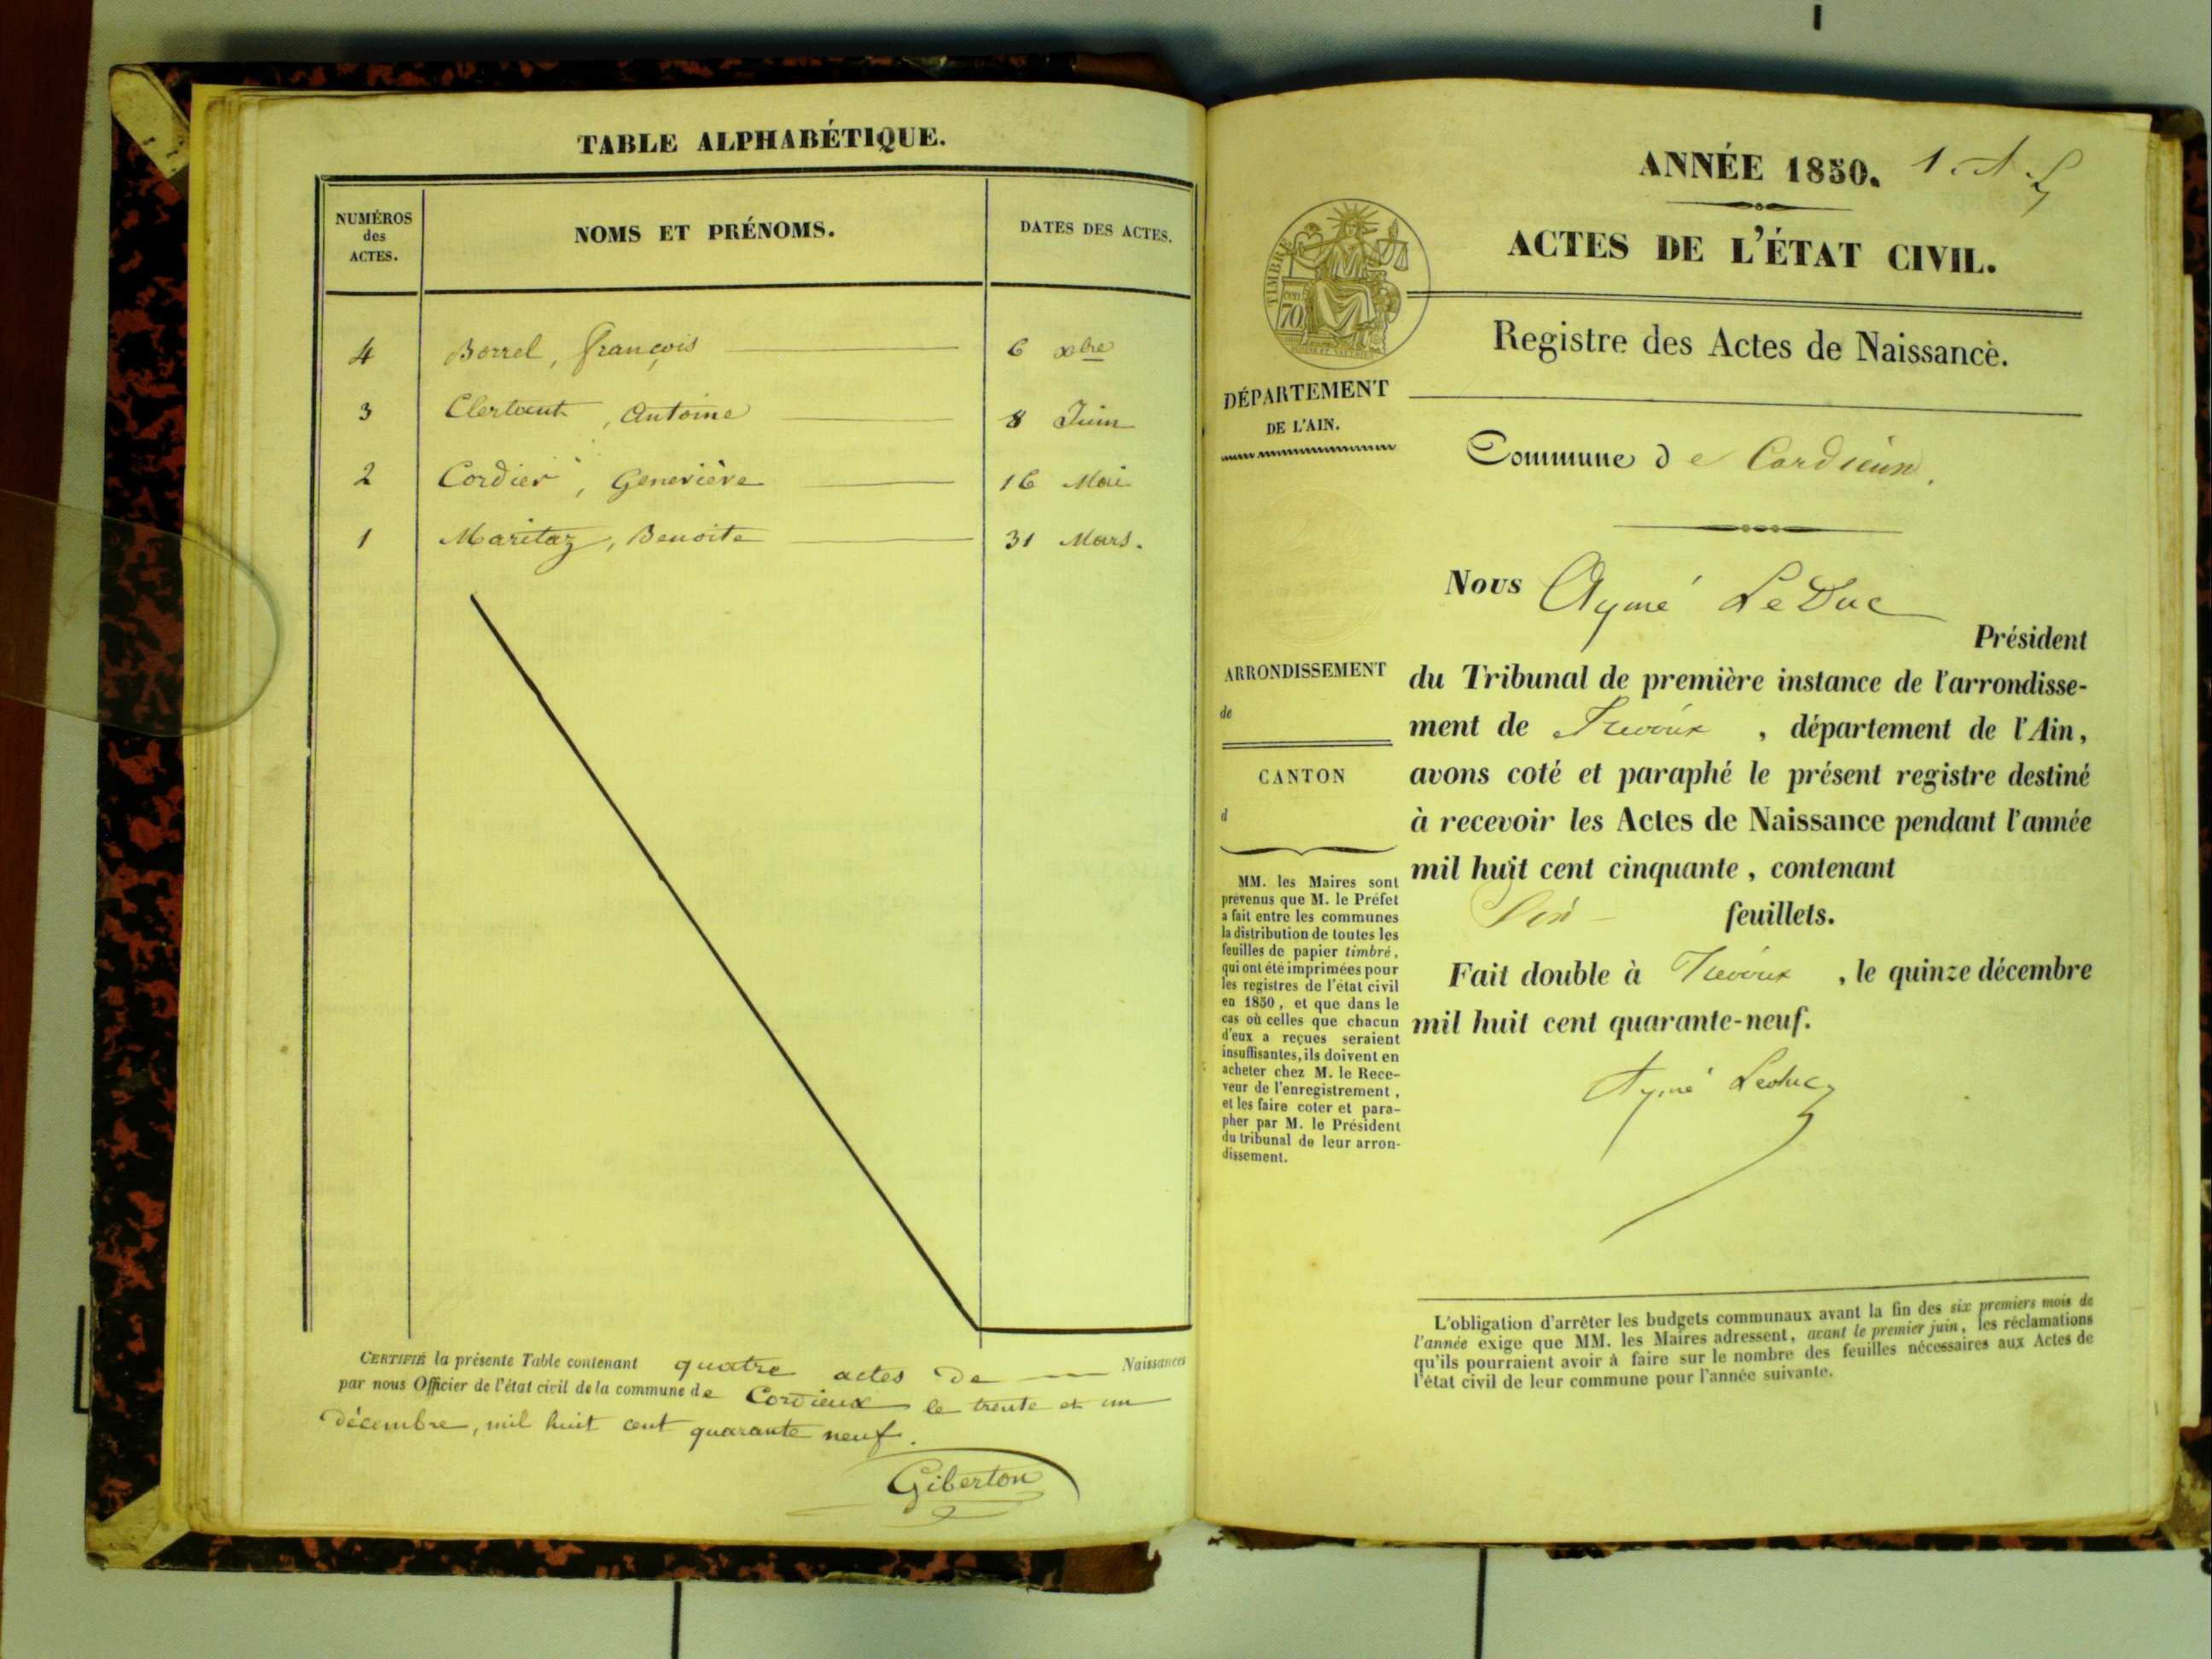 TABLE ALPHABÉTIQUE.
NUMÉROS
des
ACTES.
NOMS ET PRÉNOMS.
DATES DES ACTES.
4 Borrel, François 6 xbre
3 Clertant, Antoine 8 Juin
2 Cordier, Geneviève 16 Mai
1 Maritaz, Benoite 31 Mars.
CERTIFIÉ la présente Table contenant quatre actes de Naissances
par nous Officier de l'état civil de la commune de Cordieux le trente et un
décembre, mil huit cent quarante neuf.
Giberton
ANNÉE 1850.
ACTES DE L'ÉTAT CIVIL.
TIMBRE
70
Registre des Actes de Naissance.
DÉPARTEMENT
DE L'AIN.
Commune de Cordieux.
Nous Aymé LeDuc
Président
du Tribunal de première instance de l'arrondisse-
ment de Trévoux, département de l'Ain,
avons coté et paraphé le présent registre destiné
à recevoir les Actes de Naissance pendant l'année
mil huit cent cinquante, contenant
feuillets.
Fait double à Trévoux, le quinze décembre
mil huit cent quarante-neuf.
Aymé Leduc
ARRONDISSEMENT
de
CANTON
d
MM. les Maires sont
prévenus que M. le Préfet
a fait entre les communes
la distribution de toutes les
feuilles de papier timbré,
qui ont été imprimées pour
les registres de l'état civil
en 1850, et que dans le
cas où celles que chacun
d'eux a reçues seraient
insuffisantes, ils doivent en
acheter chez M. le Rece-
veur de l'enregistrement,
et les faire coter et para-
pher par M. le Président
du tribunal de leur arron-
dissement.
L'obligation d'arrêter les budgets communaux avant la fin des six premiers mois de
l'année exige que MM. les Maires adressent, avant le premier juin, les réclamations
qu'ils pourraient avoir à faire sur le nombre des feuilles nécessaires aux Actes de
l'état civil de leur commune pour l'année suivante.